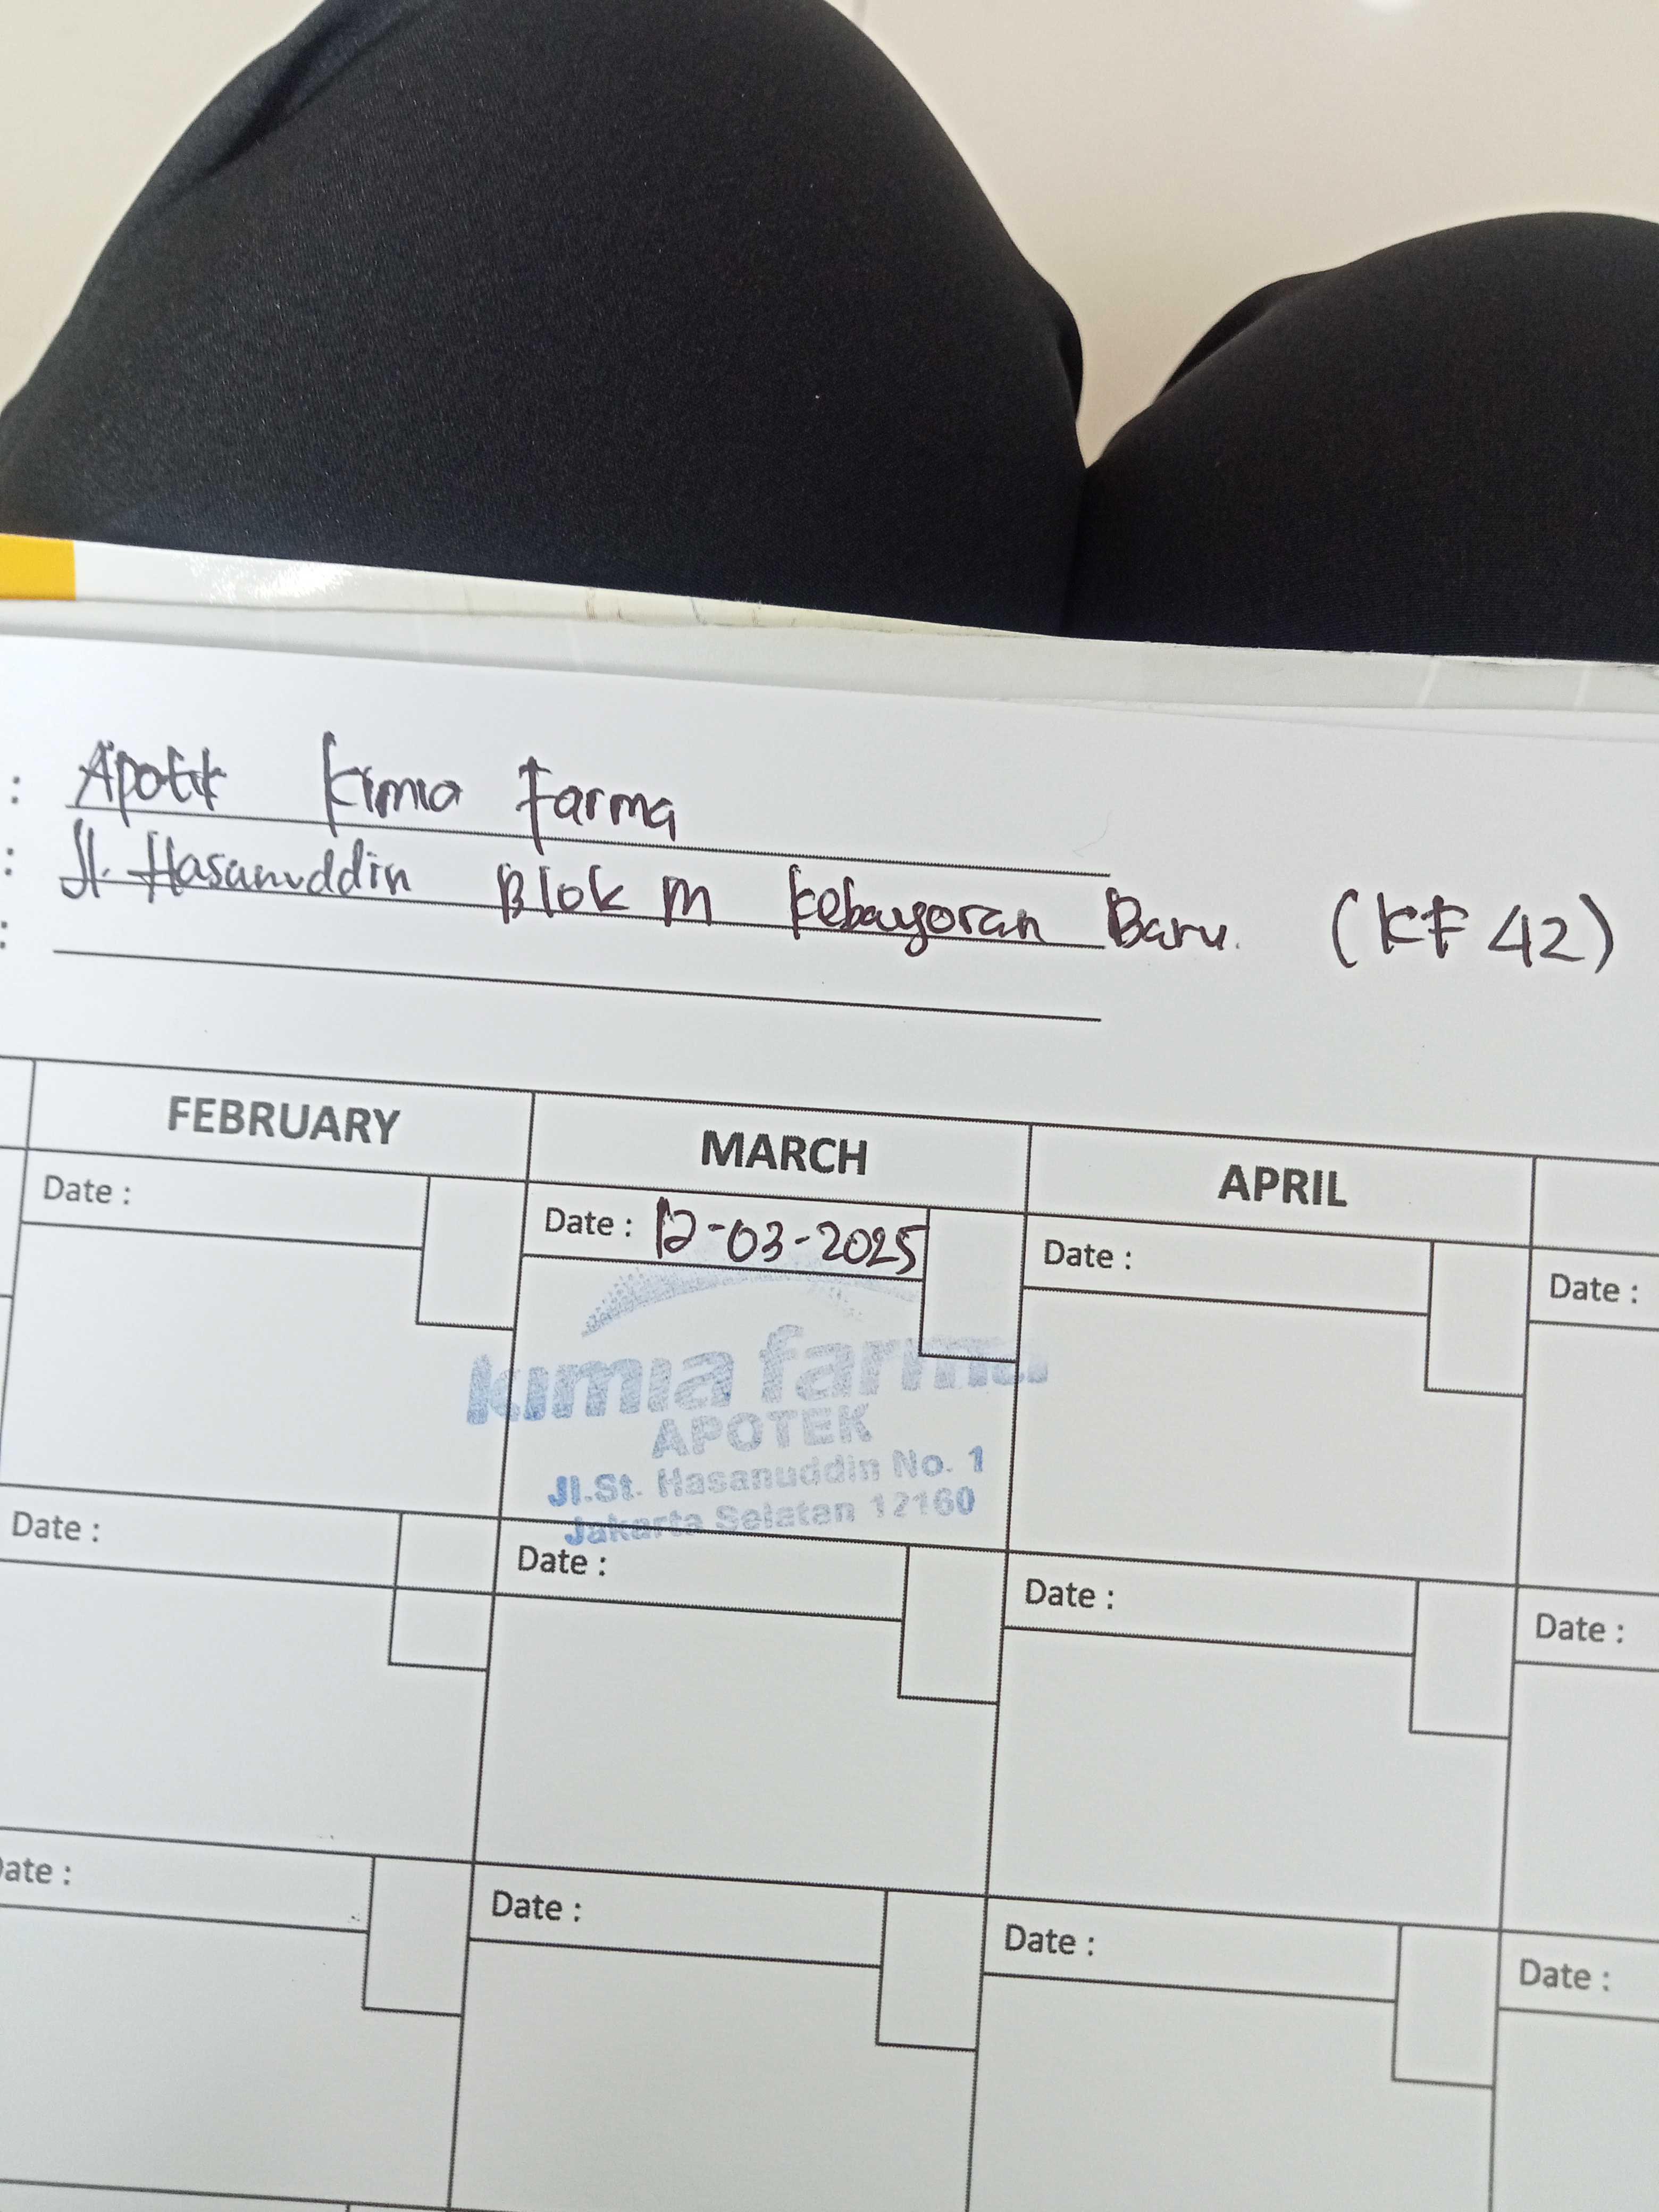 : Apotik Kimia Farma
: Jl. Hasanuddin Blok M Kebayoran Baru. (KF 42)
:
FEBRUARY MARCH APRIL
Date : Date : 12-03-2025 Date : Date :
kimia farma
APOTEK
Jl.St. Hasanuddin No. 1
Jakarta Selatan 12160
Date : Date : Date : Date :
Date : Date : Date : Date :